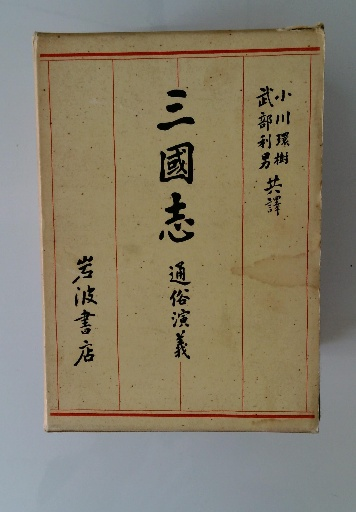 小川環樹
武部利男 共譯
三國志
通俗演義
岩波書店